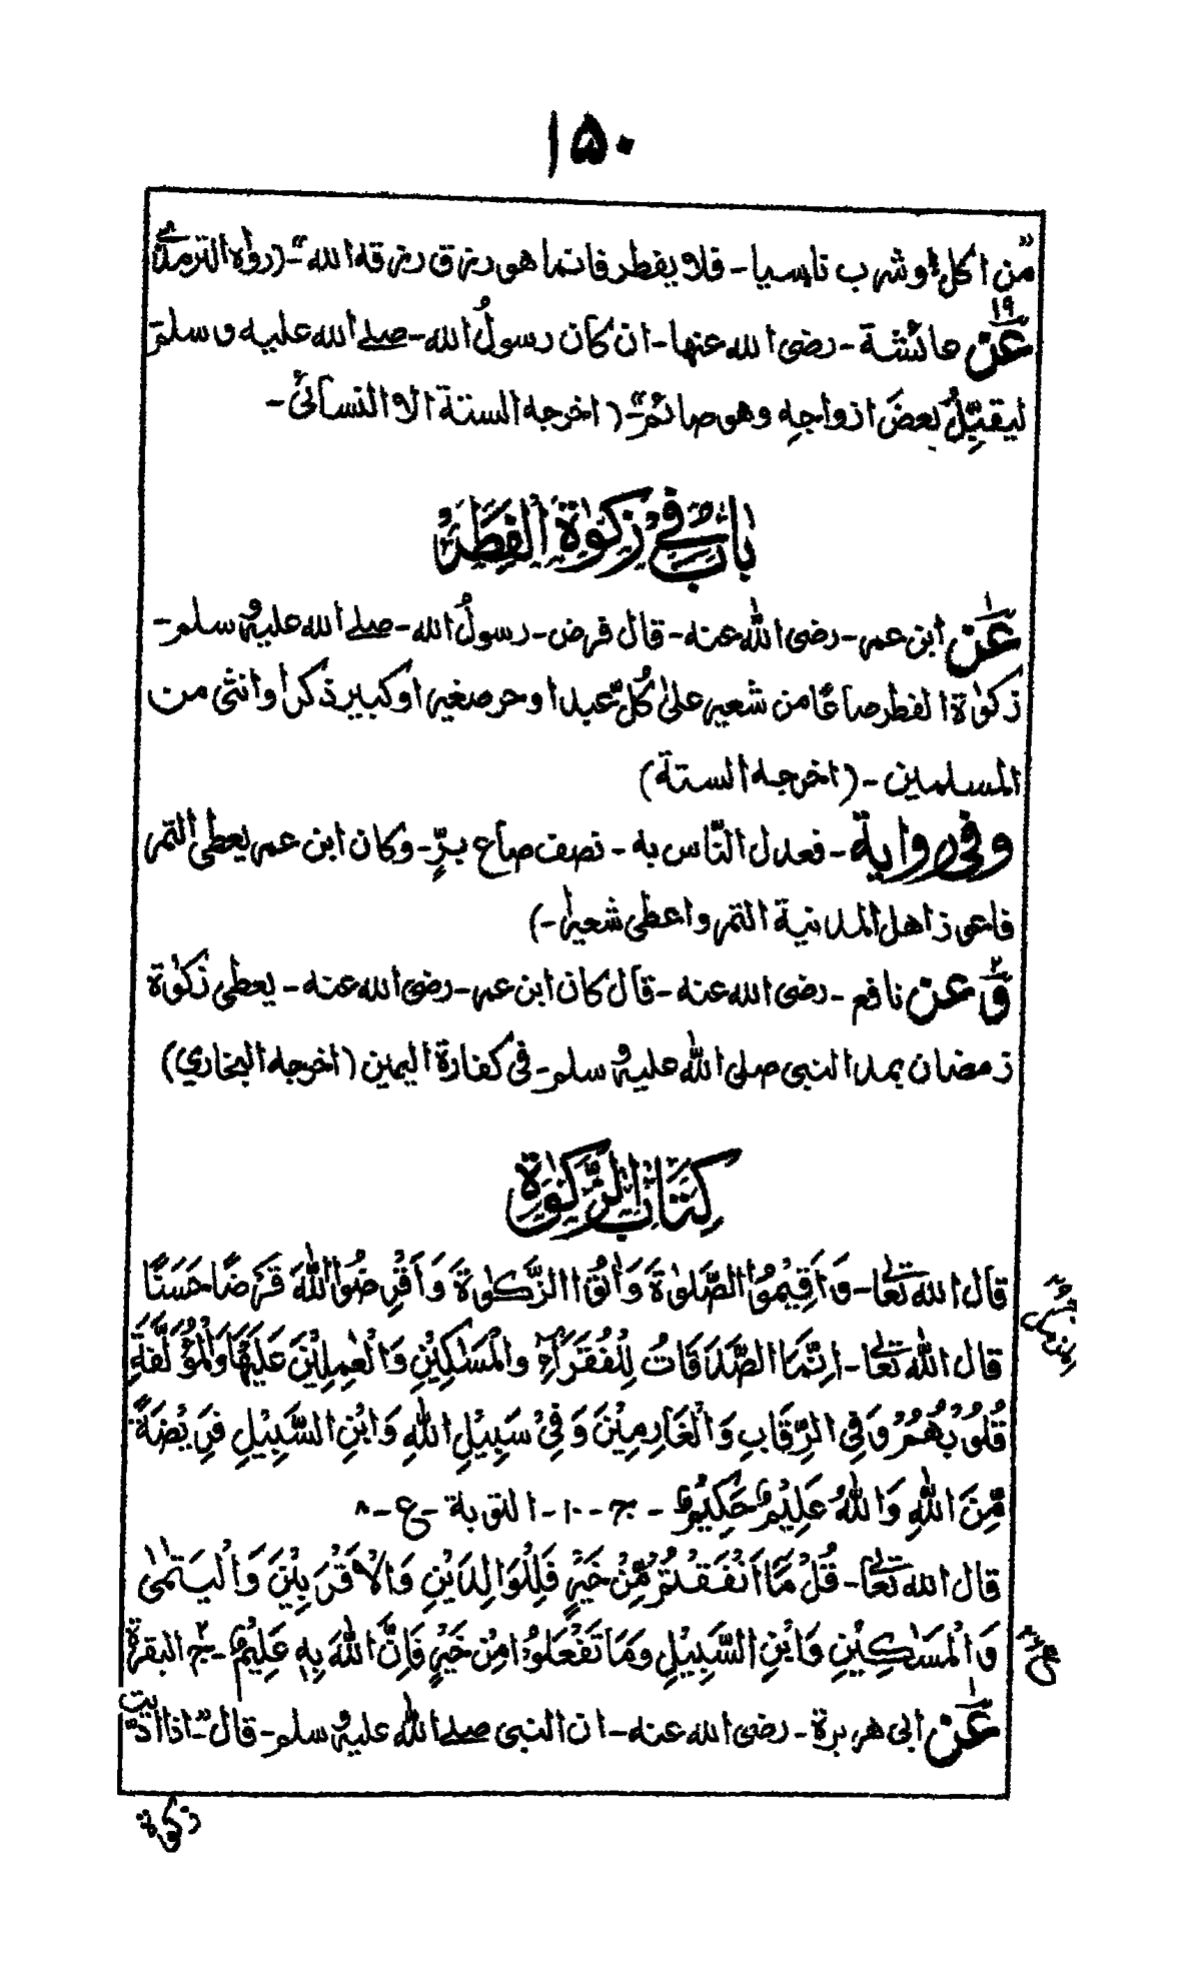 ۱۵۰
"من اکل او شرب ناسیا۔ فلا یفطر فانما ھو رزق رزقه الله"۔ (رواہ الترمذی
۱۹ عن عائشة۔ رضی الله عنها۔ ان کان رسولُ الله۔ صلے الله علیه وسلم
لیقبِّلُ بعضَ ازواجِه وھو صائمٌ"۔ (اخرجه الستة الا النسائی۔
بابٌ فی زکوٰة الفطر
۱ عن ابن عمر۔ رضی الله عنه۔ قال فرض۔ رسولُ الله۔ صلے الله علیه وسلم۔
زکوٰة الفطر صاعًا من شعیر علیٰ کُلّ عبد او حر صغیر او کبیر ذکرا وانثی من
المسلمین۔ (اخرجه الستة)
وفی روایة۔ فعدل النّاس به۔ نصف صاع برٍّ۔ وکان ابن عمر یعطی التمر
فاعوز اھل المدینة التمر واعطی شعیرا۔)
۲ وعن نافع۔ رضی الله عنه۔ قال کان ابن عمر۔ رضی الله عنه۔ یعطی زکوٰة
رمضان بمد النبی صلی الله علیه وسلم۔ فی کفارة الیمین (اخرجه البخاری)
کتاب الزکوٰة
قال الله تعالٰی۔ وَاَقِیْمُوا الصَّلوٰةَ وَاٰتُوا الزَّکوٰةَ وَاَقْرِضُوا اللهَ قَرْضًا حَسَنًا
قال الله تعالٰی۔ اِنَّمَا الصَّدَقَاتُ لِلْفُقَرَآءِ والْمَسٰکِیْنِ وَالْعٰمِلِیْنَ عَلَیْهَا وَالْمُؤَلَّفَةِ
قُلُوْبُهُمْ وَفِی الرِّقَابِ وَالْغَارِمِیْنَ وَفِیْ سَبِیْلِ اللهِ وَابْنِ السَّبِیْلِ فَرِیْضَةً
مِّنَ اللهِ وَاللهُ عَلِیْمٌ حَکِیْمٌ۔ ج۔ ۱۰۔ التوبة۔ ع۔ ۸
قال الله تعالٰی۔ قُلْ مَا اَنْفَقْتُمْ مِّنْ خَیْرٍ فَلِلْوَالِدَیْنِ وَالْاَقْرَبِیْنَ وَالْیَتٰمٰی
وَالْمَسٰکِیْنِ وَابْنِ السَّبِیْلِ وَمَا تَفْعَلُوْا مِنْ خَیْرٍ فَاِنَّ اللهَ بِهٖ عَلِیْمٌ۔ ج ۲ البقرة
۱ عن ابی ھریرة۔ رضی الله عنه۔ ان النبی صلے الله علیه وسلم۔ قال"۔ اذا ادّیت
زکوٰة